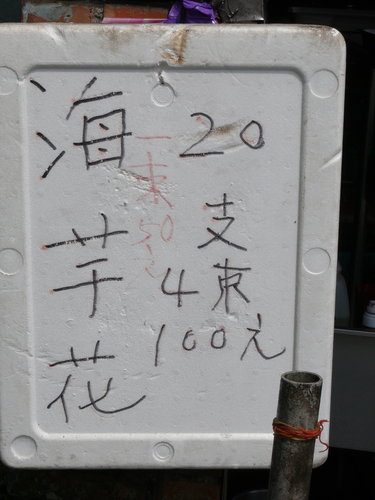 海芋花
一束50
20
支
4束
100元